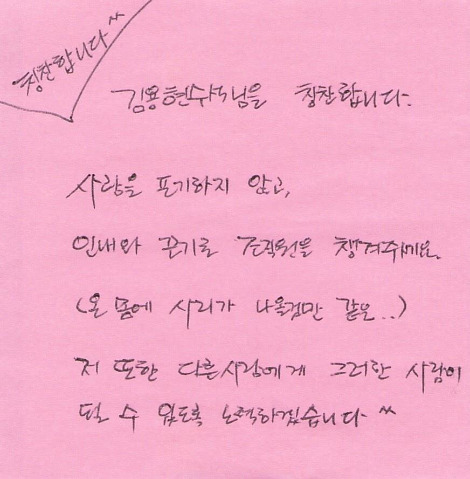 칭찬합니다^^
김용현수녀님을 칭찬합니다.
사람을 포기하지 않고,
인내와 끈기로 조직원을 챙겨줘요.
(온 몸에 사리가 나올것만 같은..)
저 또한 다른사람에게 그러한 사람이
될 수 있도록 노력하겠습니다 ^^